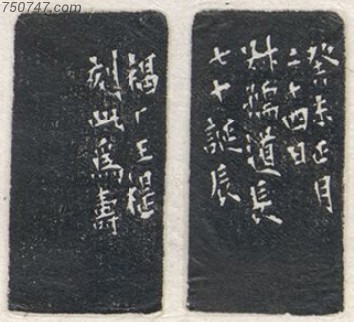 750747.com
癸未正月
二十四日
叔孺道長
七十誕辰
福厂王禔
刻此爲壽